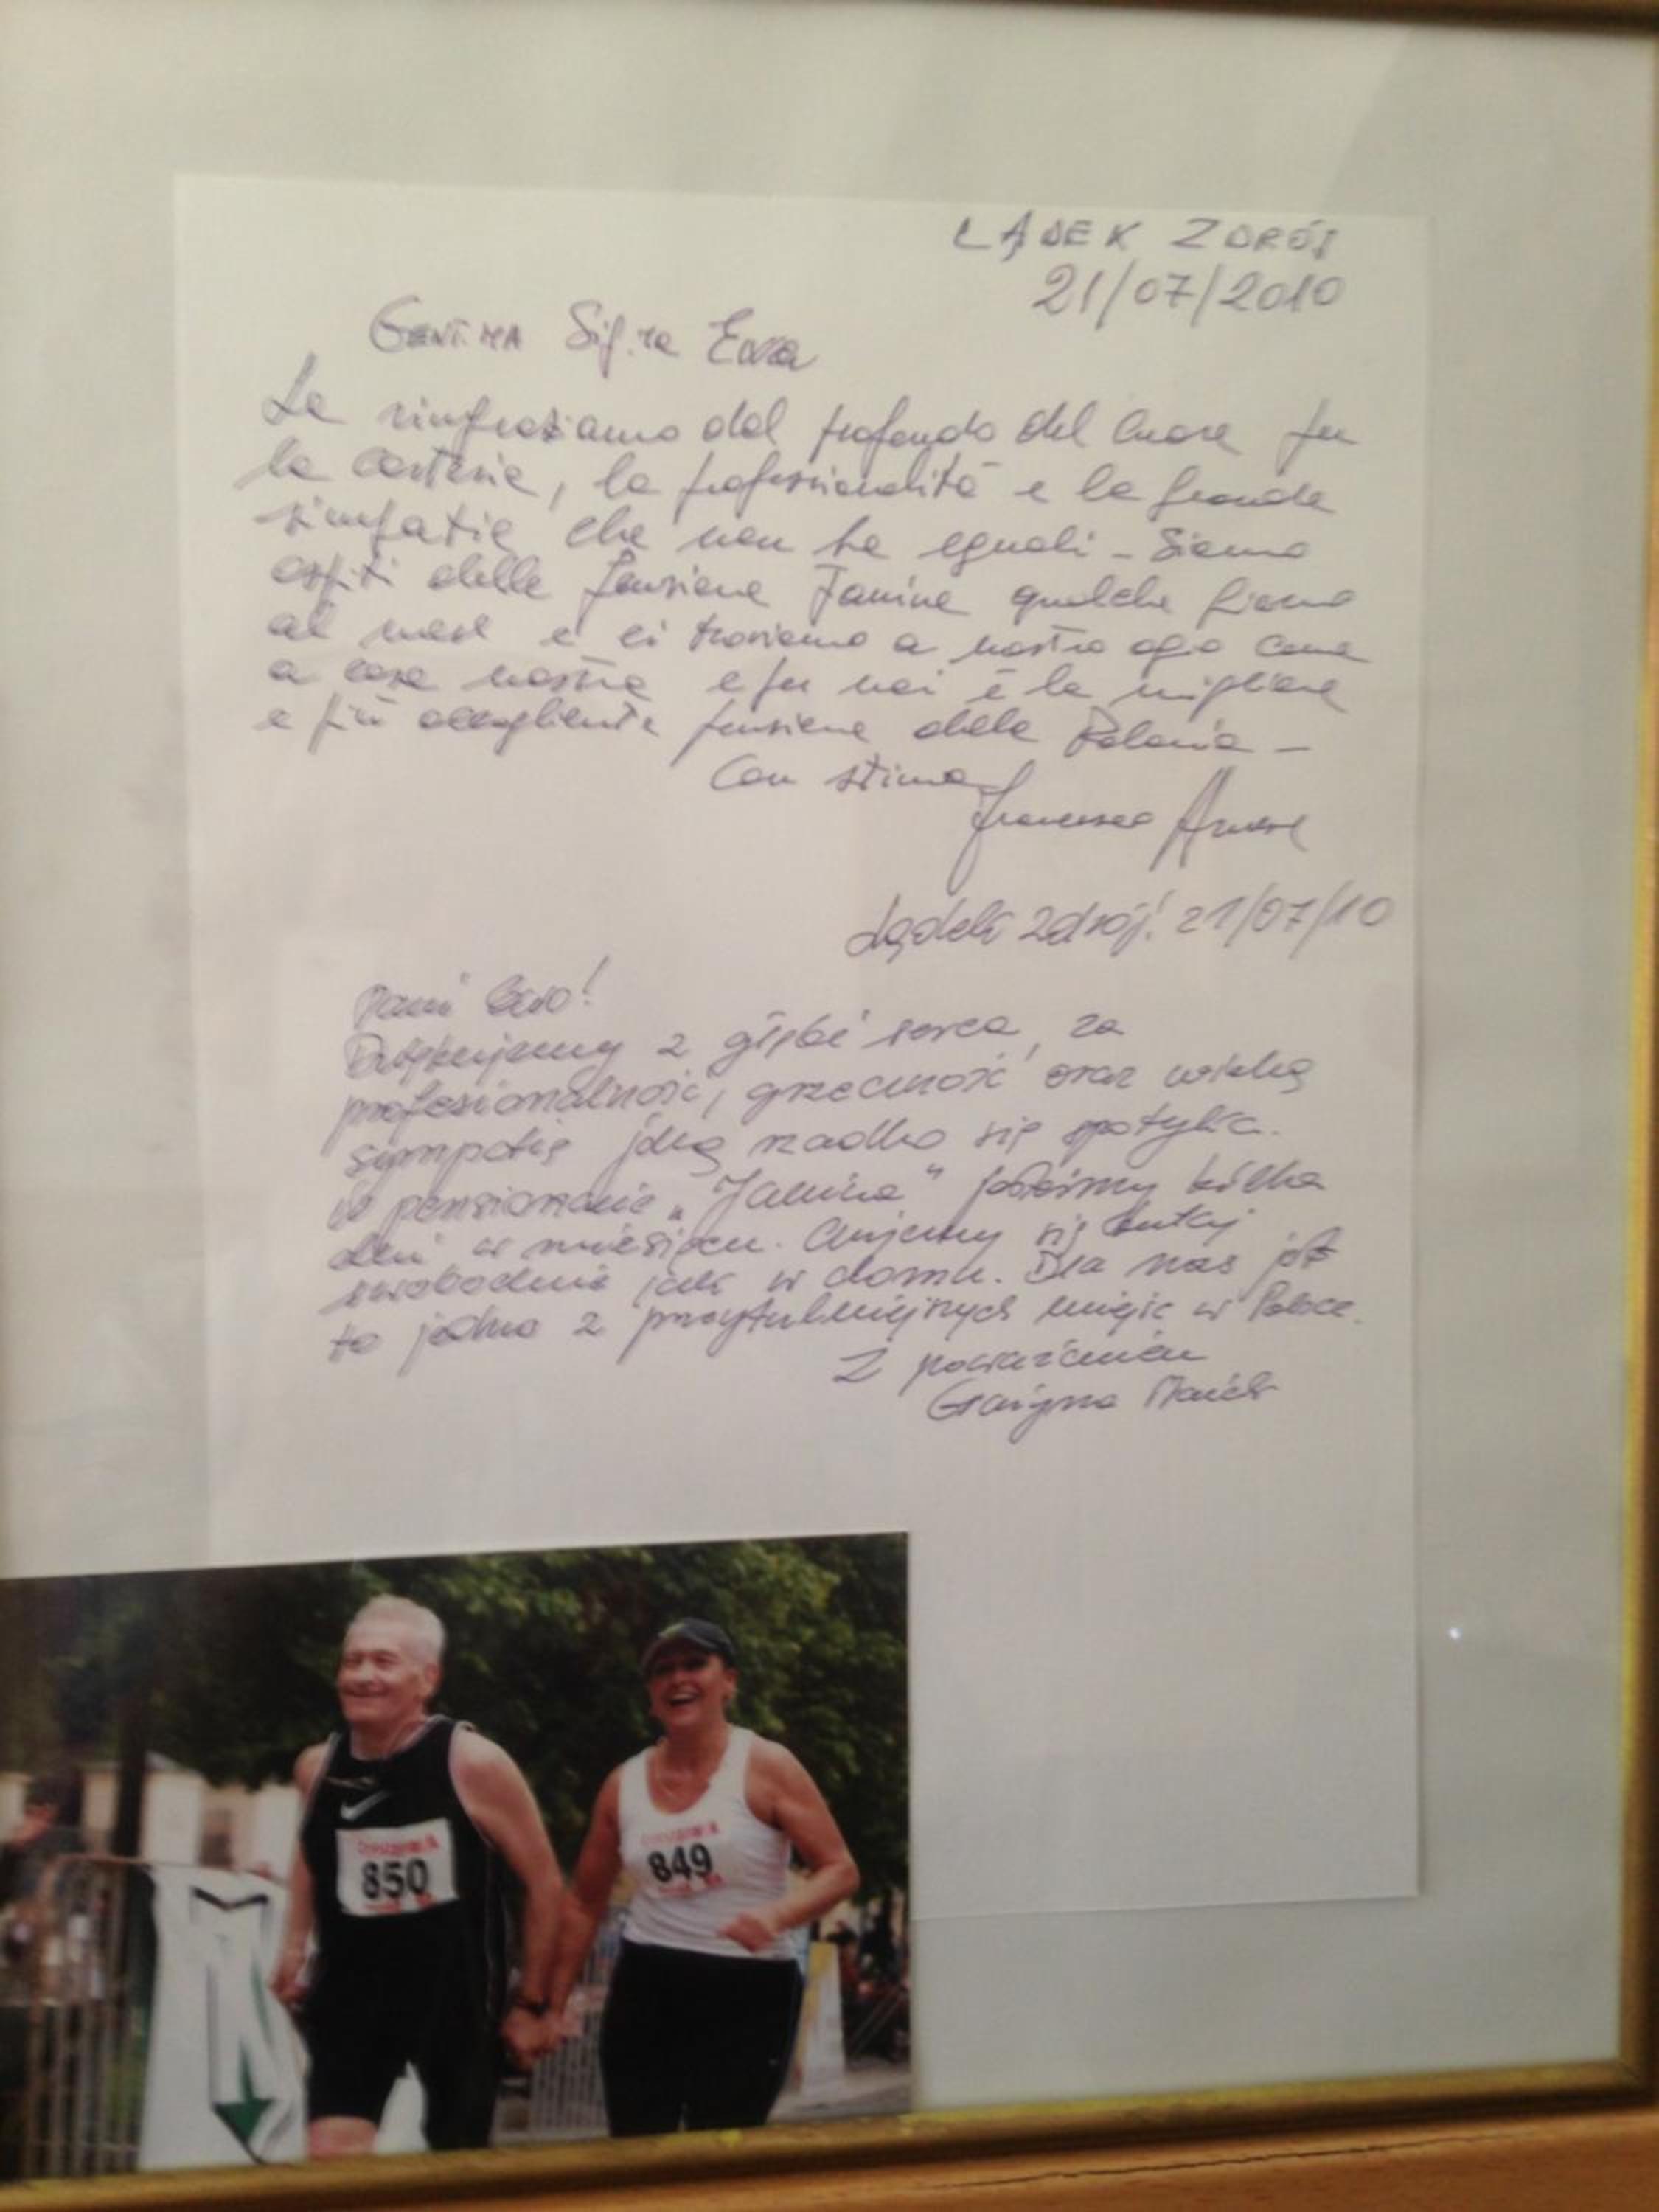 LĄDEK ZDRÓJ
21/07/2010
GENT.MA Sig.ra Ewa
La ringraziamo dal profondo del cuore per
la cortesia, la professionalità e la grande
simpatia che non ha eguali – Siamo
ospiti della pensione Janina qualche giorno
al mese e ci troviamo a nostro agio come
a casa nostra e per noi è la migliore
e più accogliente pensione della Polonia –
Con stima
Francesco
Lądek Zdrój. 21/07/10
Pani Ewo!
Dziękujemy z głębi serca, za
profesjonalność, grzeczność oraz wielką
sympatię jaką rzadko się spotyka.
W pensionacie "Janina" jesteśmy kilka
dni w miesiącu. Czujemy się tutaj
swobodnie jak w domu. Dla nas jest
to jedno z przytulniejszych miejsc w Polsce.
Z poważaniem
Grażyna
850
849